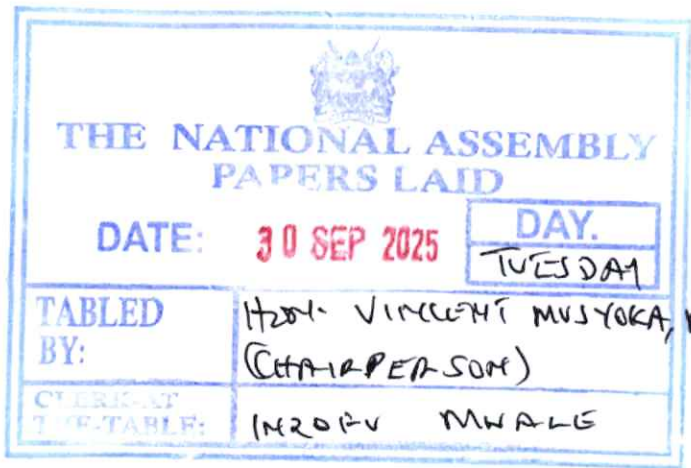 THE NATIONAL ASSEMBLY
PAPERS LAID
DATE: 30 SEP 2025 DAY.
TUESDAY
TABLED BY: HON. VINCENT MUSYOKA,
(CHAIRPERSON)
CLERK-AT THE-TABLE: MWALE